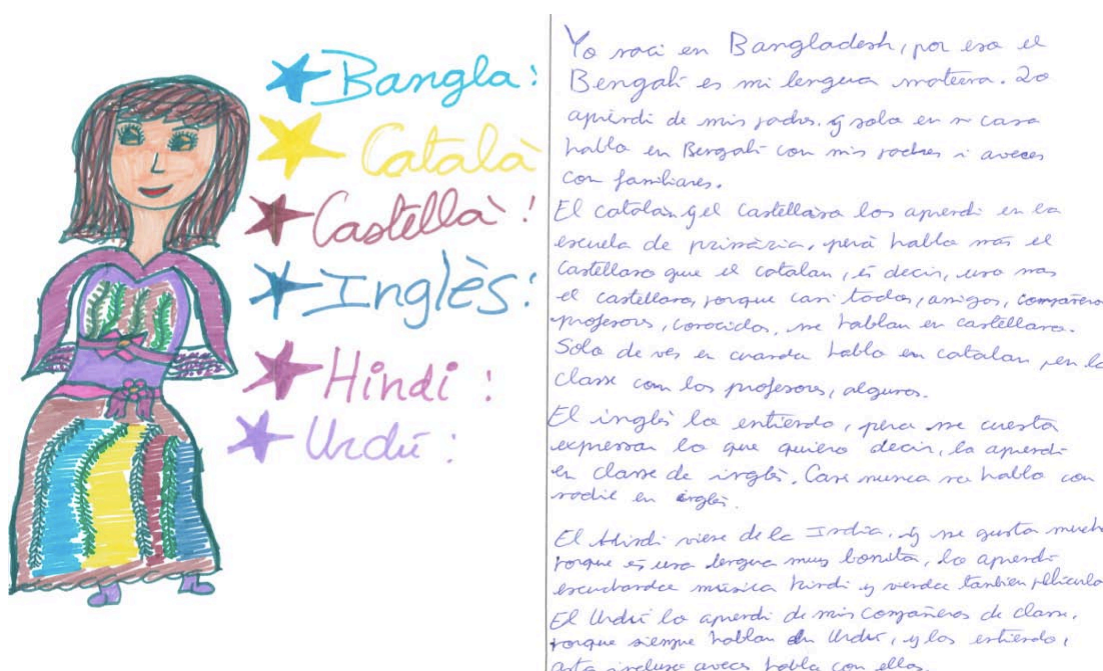 Bangla:
Català
Castellà!
Inglès:
Hindi :
Urdú :
Yo naci en Bangladesh, por eso el
Bengalí es mi lengua materna. Lo
aprendi de mis padres. y solo en casa
hablo en Bengalí con mis padres i aveces
con familiares.
El catalan y el castellano los aprendi en la
escuela de primària, però hablo mas el
castellano que el catalan, és decir, uso mas
el castellano, porque casi todos, amigos, compañeros
profesores, conocidos, me hablan en castellano.
Solo de ves en cuando hablo en catalan, en la
classe con los profesores, algunos.
El inglès lo entiendo, pero me cuesta
expressar lo que quiero decir, lo aprendi
en classe de inglès. Casi nunca no hablo con
nadie en inglès.
El Hindi viene de la India, y me gusta mucho
porque és una lengua muy bonita, lo aprendi
escuchando música hindi y viendo tambien películas
El Urdú lo aprendi de mis compañeros de classe,
porque siempre hablan en Urdú, y los entiendo,
asta incluso aveces hablo con ellos.